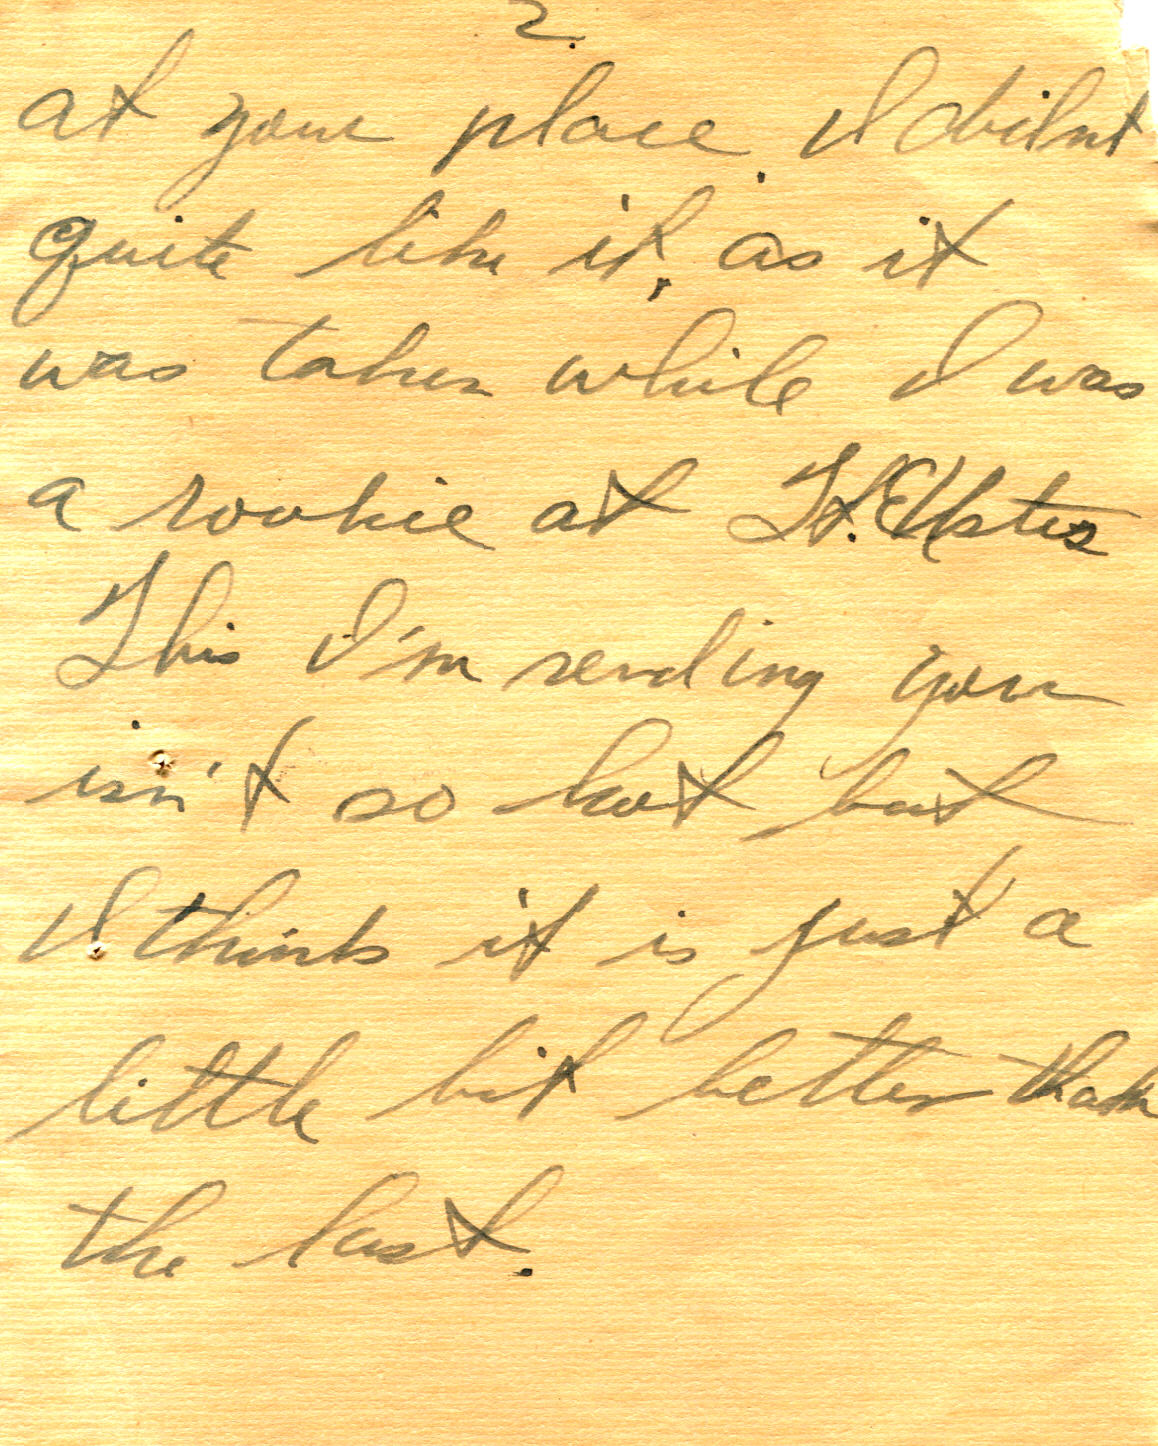 2.
at your place. I didnt
quite like it, as it
was taken while I was
a rookie at Ft. Eustis
This I'm sending you
isn't so hot but
I think it is just a
little bit better than
the last.